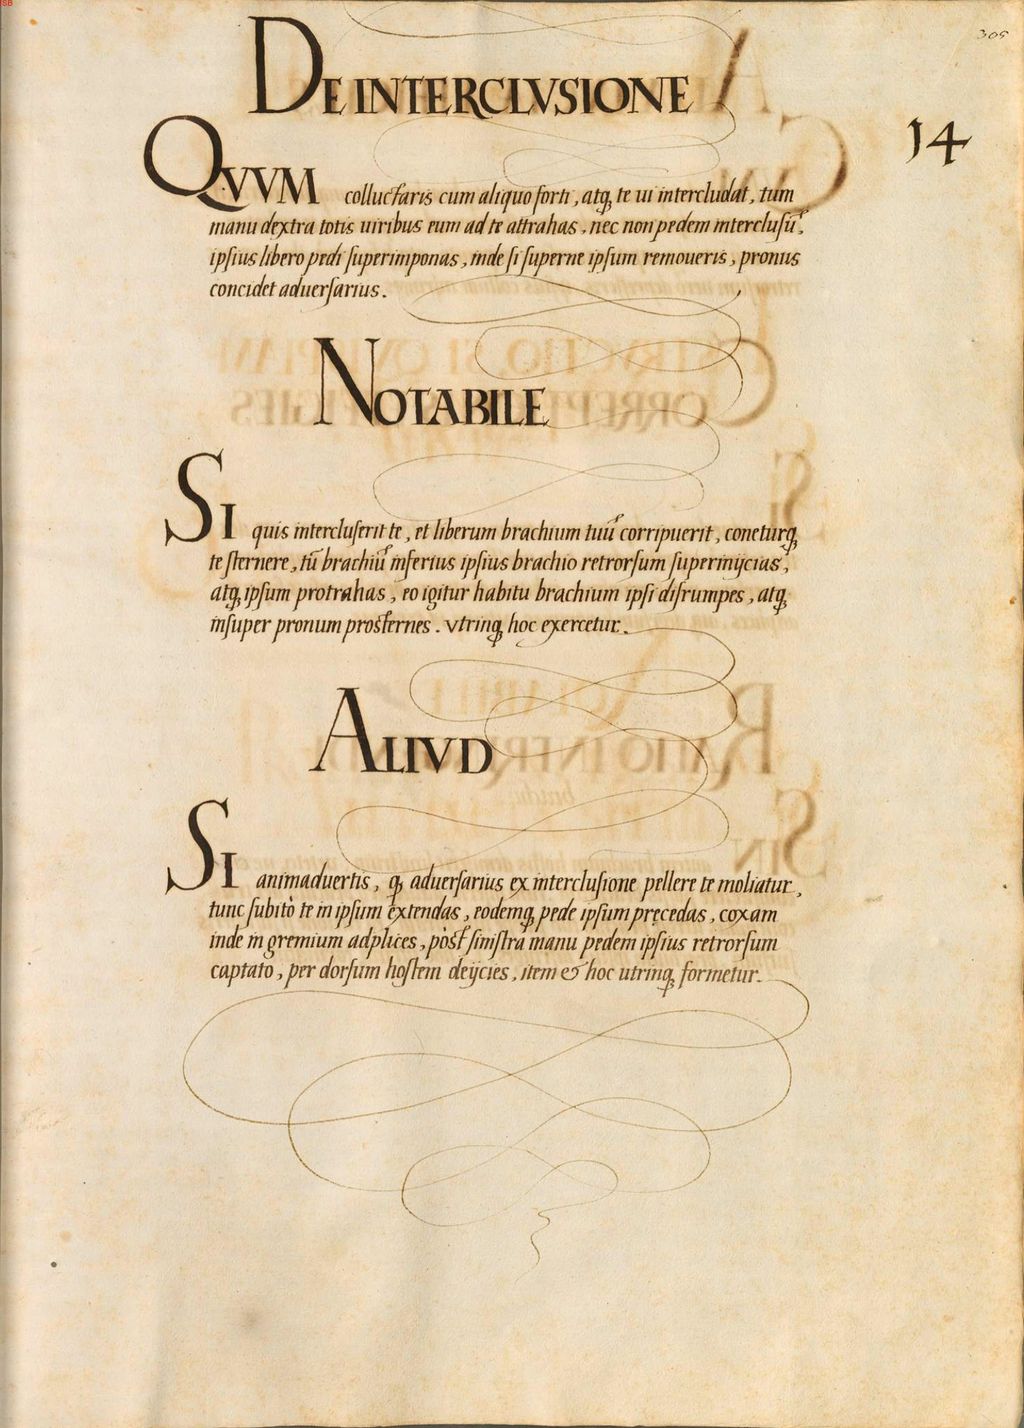 305
DE INTERCLVSIONE
14
QVVM colluctaris cum aliquo forti, atq, te ui intercludat, tum
manu dextra totis uiribus eum ad te attrahas, nec non pedem interclusũ,
ipsius libero pedi superimponas, inde si superne ipsum remoueris, pronus
concidet aduersarius.
NOTABILE
SI quis intercluserit te, et liberum brachium tuũ corripuerit, coneturq,
te sternere, tũ brachiũ inferius ipsius brachio retrorsum superinijcias,
atq, ipsum protrahas, eo igitur habitu brachium ipsi disrumpes, atq,
insuper pronum prosternes. Vtrinq, hoc exercetur.
ALIVD
SI animaduertis, q, aduersarius ex interclusione pellere te moliatur,
tunc subitò te in ipsum extendas, eodemq, pede ipsum pręcedas, coxam
inde in gremium adplices, pòst sinistra manu pedem ipsius retrorsum
captato, per dorsum hostem deijcies, item & hoc utrinq, formetur.